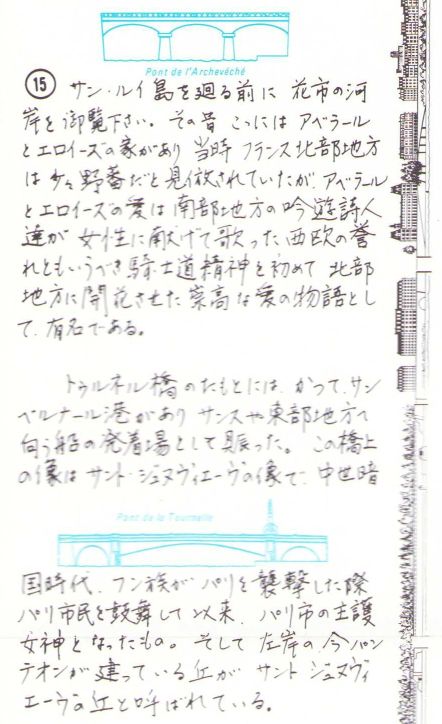 Pont de l'Archevêché
15 サン・ルイ島を廻る前に 花市の河
岸を御覧下さい。その昔 ここには アベラール
とエロイーズの家があり 当時 フランス北部地方
は少々野蕃だと見做されていたが、アベラール
とエロイーズの愛は南部地方の吟遊詩人
達が 女性に献げて歌った西欧の誉
れともいうべき騎士道精神を初めて 北部
地方に開花させた崇高な愛の物語とし
て有名である。
トゥルネル橋のたもとには、かつて、サン
ベルナール港があり サンスや東部地方へ
向う船の発着場として賑った。 この橋上
の像は サント・ジュヌヴィエーヴの像で、中世暗
Pont de la Tournelle
国時代、フン族がパリを襲撃した際
パリ市民を鼓舞して以来、パリ市の主護
女神となったもの。そして左岸の、今パン
テオンが建っている丘が サント ジュヌヴィ
エーヴの丘と呼ばれている。